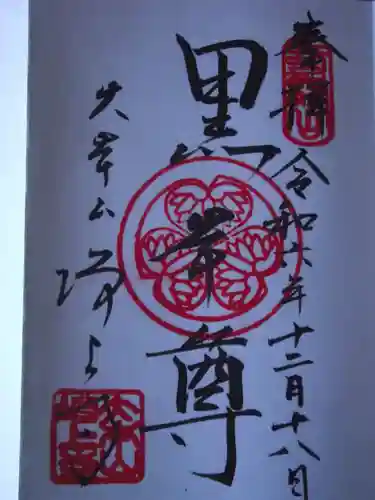 奉拝
令和六年十二月十八日
黒本尊
大本山 増上寺